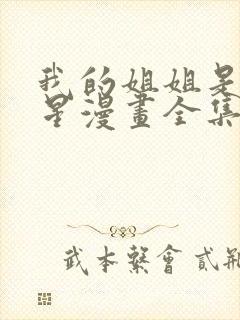 我的姐姐是
星漫畫全集
武本繫會貳瓶